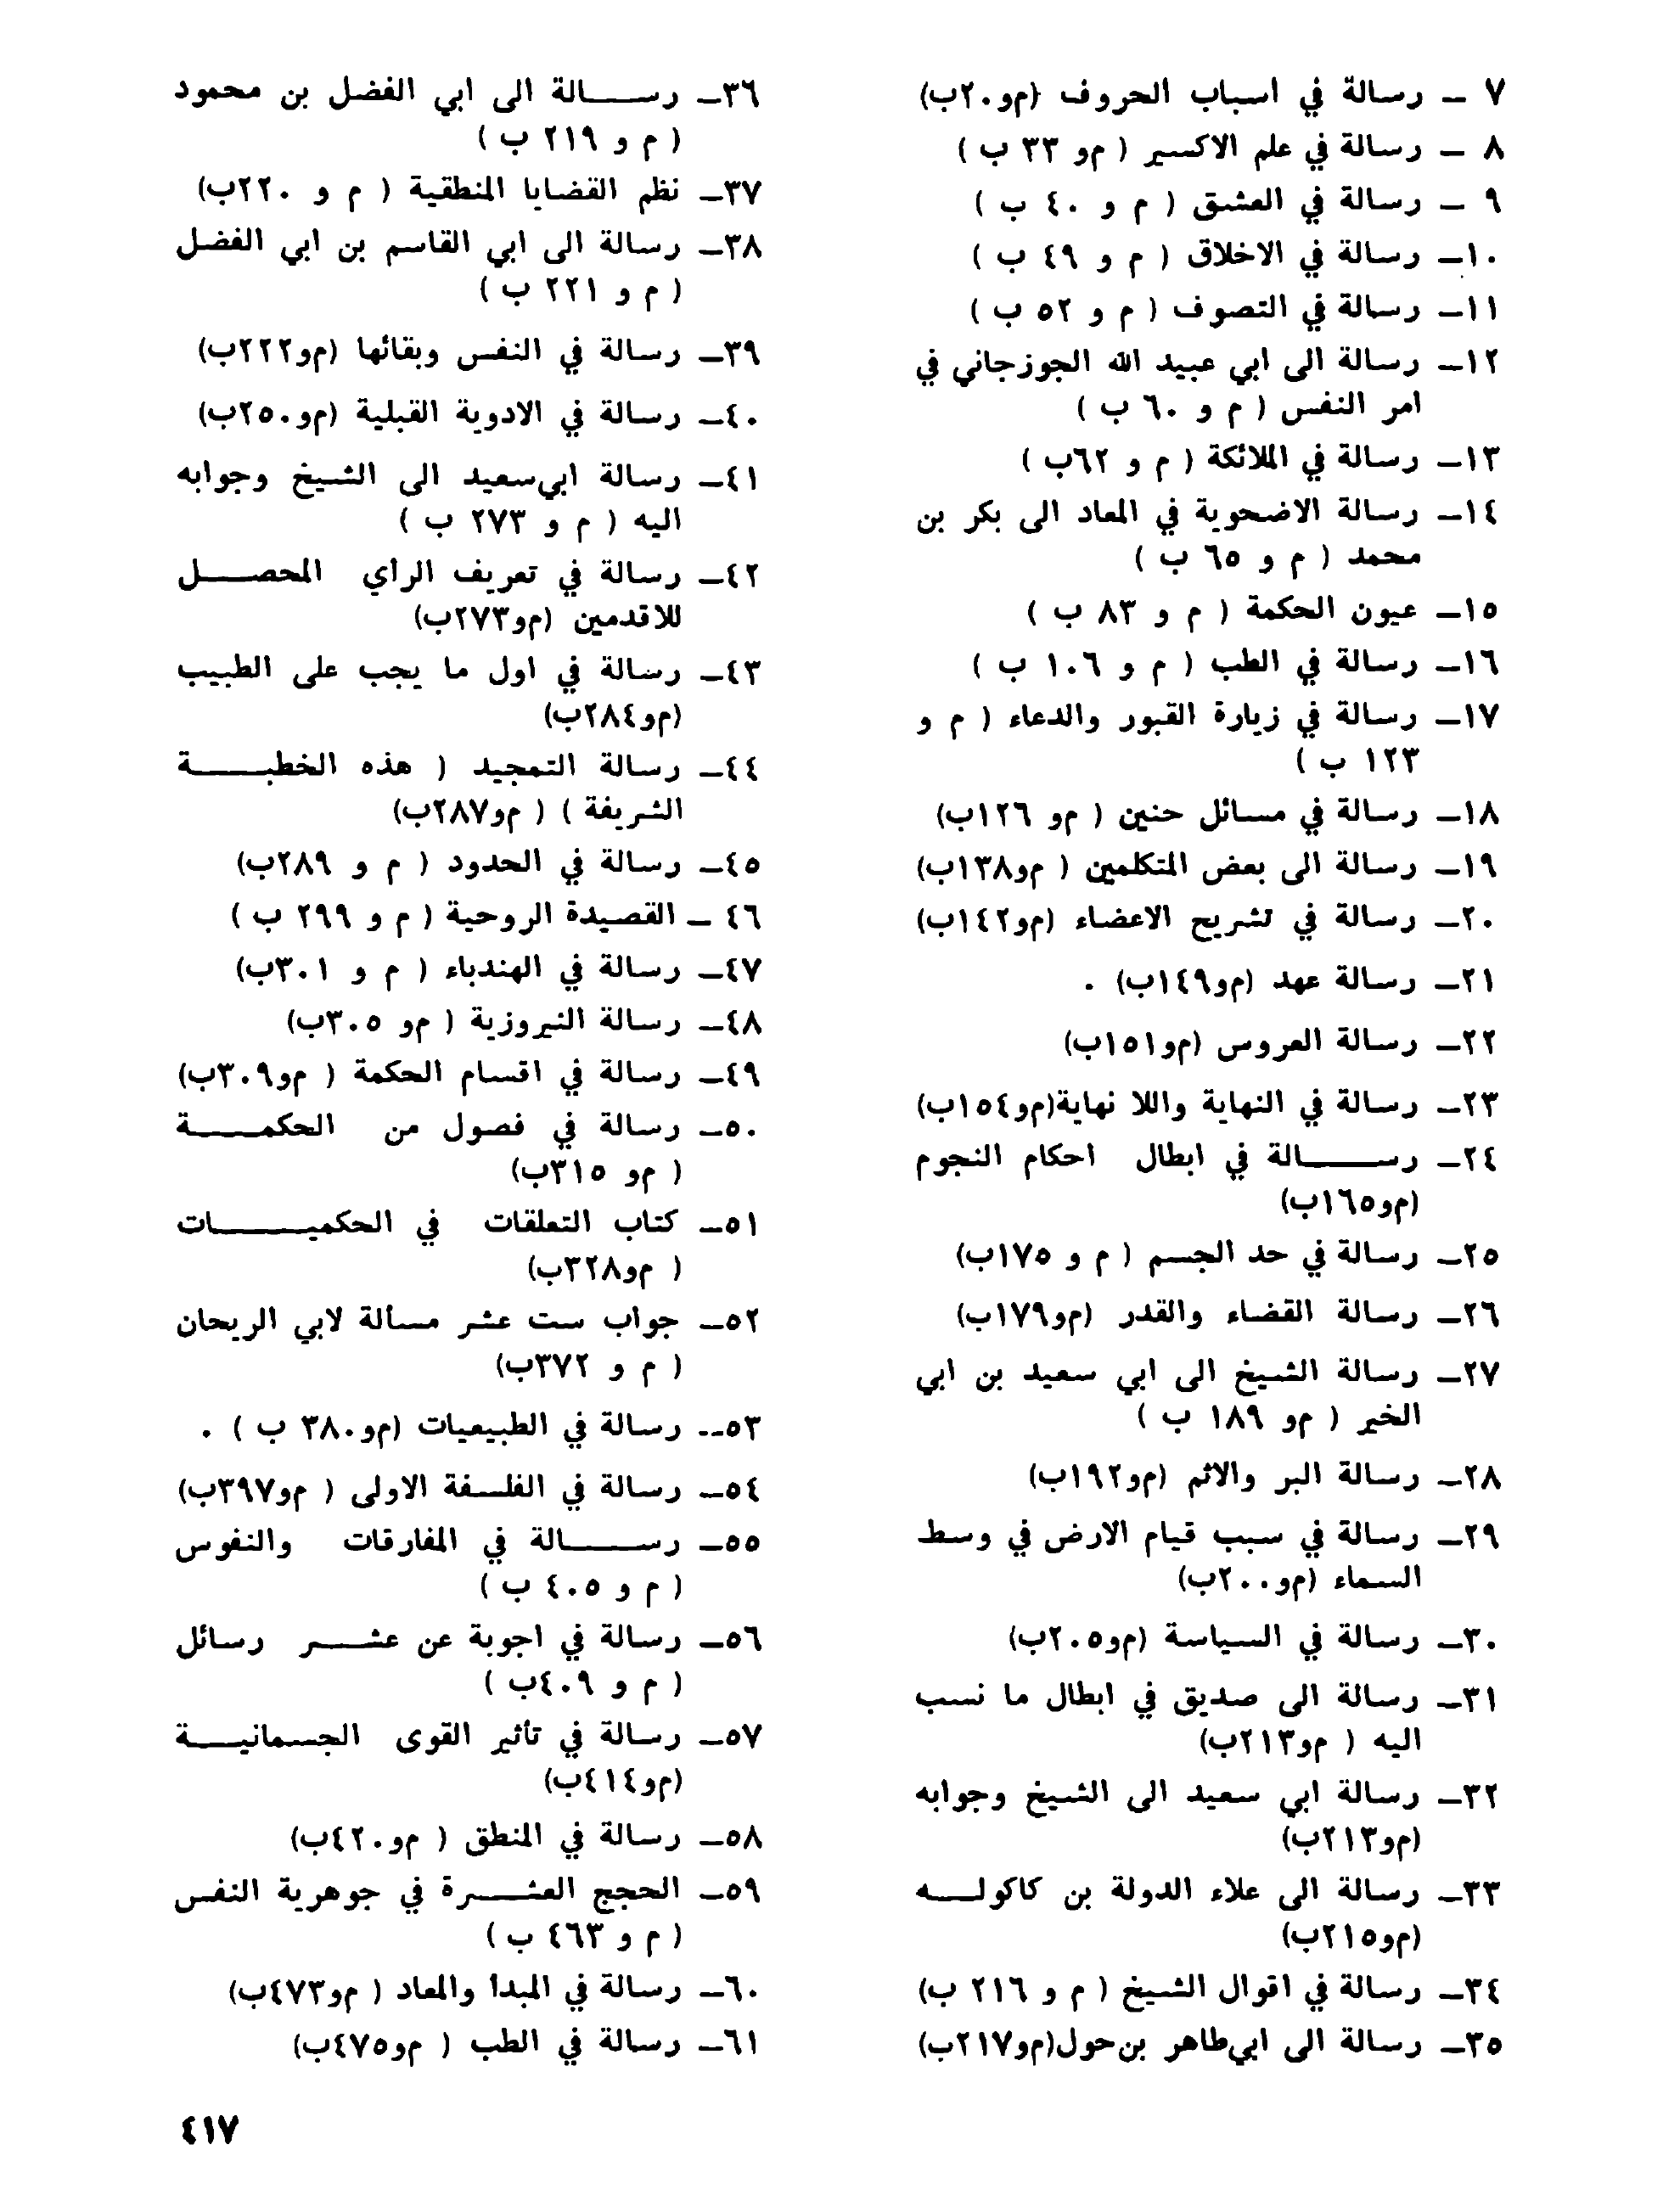 ٧ ـ رسالة في اسباب الحروف (مو٢٠ب)
٨ ـ رسالة في علم الاكسير ( مو ٣٣ ب )
٩ ـ رسالة في العشق ( م و ٤٠ ب )
١٠ـ رسالة في الاخلاق ( م و ٤٩ ب )
١١ـ رسالة في التصوف ( م و ٥٢ ب )
١٢ـ رسالة الى ابي عبيد الله الجوزجاني في
امر النفس ( م و ٦٠ ب )
١٣ـ رسالة في الملائكة ( م و ٦٢ب )
١٤ـ رسالة الاضحوية في المعاد الى بكر بن
محمد ( م و ٦٥ ب )
١٥ـ عيون الحكمة ( م و ٨٣ ب )
١٦ـ رسالة في الطب ( م و ١٠٦ ب )
١٧ـ رسالة في زيارة القبور والدعاء ( م و
١٢٣ ب )
١٨ـ رسالة في مسائل حنين ( مو ١٢٦ب)
١٩ـ رسالة الى بعض المتكلمين ( مو١٣٨ب)
٢٠ـ رسالة في تشريح الاعضاء (مو١٤٢ب)
٢١ـ رسالة عهد (مو١٤٩ب) .
٢٢ـ رسالة العروس (مو١٥١ب)
٢٣ـ رسالة في النهاية واللا نهاية(مو١٥٤ب)
٢٤ـ رســـــالة في ابطال احكام النجوم
(مو١٦٥ب)
٢٥ـ رسالة في حد الجسم ( م و ١٧٥ب)
٢٦ـ رسالة القضاء والقدر (مو١٧٩ب)
٢٧ـ رسالة الشيخ الى ابي سعيد بن ابي
الخير ( مو ١٨٩ ب )
٢٨ـ رسالة البر والاثم (مو١٩٢ب)
٢٩ـ رسالة في سبب قيام الارض في وسط
السماء (مو٢٠٠ب)
٣٠ـ رسالة في السياسة (مو٢٠٥ب)
٣١ـ رسالة الى صديق في ابطال ما نسب
اليه ( مو٢١٣ب)
٣٢ـ رسالة ابي سعيد الى الشيخ وجوابه
(مو٢١٣ب)
٣٣ـ رسالة الى علاء الدولة بن كاكولـــه
(مو٢١٥ب)
٣٤ـ رسالة في اقوال الشيخ ( م و ٢١٦ ب)
٣٥ـ رسالة الى ابي‌طاهر بن‌حول(مو٢١٧ب)
٣٦ـ رســـالة الى ابي الفضل بن محمود
( م و ٢١٩ ب )
٣٧ـ نظم القضايا المنطقية ( م و ٢٢٠ب)
٣٨ـ رسالة الى ابي القاسم بن ابي الفضل
( م و ٢٢١ ب )
٣٩ـ رسالة في النفس وبقائها (مو٢٢٢ب)
٤٠ـ رسالة في الادوية القبلية (مو٢٥٠ب)
٤١ـ رسالة ابي‌سعيد الى الشيخ وجوابه
اليه ( م و ٢٧٣ ب )
٤٢ـ رسالة في تعريف الرأي المحصـــل
للاقدمين (مو٢٧٣ب)
٤٣ـ رسالة في اول ما يجب على الطبيب
(مو٢٨٤ب)
٤٤ـ رسالة التمجيد ( هذه الخطبــــة
الشريفة ) ( مو٢٨٧ب)
٤٥ـ رسالة في الحدود ( م و ٢٨٩ب)
٤٦ ـ القصيدة الروحية ( م و ٢٩٩ ب )
٤٧ـ رسالة في الهندباء ( م و ٣٠١ب)
٤٨ـ رسالة النيروزية ( مو ٣٠٥ب)
٤٩ـ رسالة في اقسام الحكمة ( مو٣٠٩ب)
٥٠ـ رسالة في فصول من الحكمـــة
( مو ٣١٥ب)
٥١ـ كتاب التعلقات في الحكميـــــات
( مو٣٢٨ب)
٥٢ـ جواب ست عشر مسألة لابي الريحان
( م و ٣٧٢ب)
٥٣ـ رسالة في الطبيعيات (مو٣٨٠ ب ) .
٥٤ـ رسالة في الفلسفة الاولى ( مو٣٩٧ب)
٥٥ـ رســـــالة في المفارقات والنفوس
( م و ٤٠٥ ب )
٥٦ـ رسالة في اجوبة عن عشـــر رسائل
( م و ٤٠٩ب )
٥٧ـ رسالة في تأثير القوى الجسمانيـــة
(مو٤١٤ب)
٥٨ـ رسالة في المنطق ( مو٤٢٠ب)
٥٩ـ الحجج العشـــرة في جوهرية النفس
( م و ٤٦٣ ب )
٦٠ـ رسالة في المبدأ والمعاد ( مو٤٧٣ب)
٦١ـ رسالة في الطب ( مو٤٧٥ب)
٤١٧